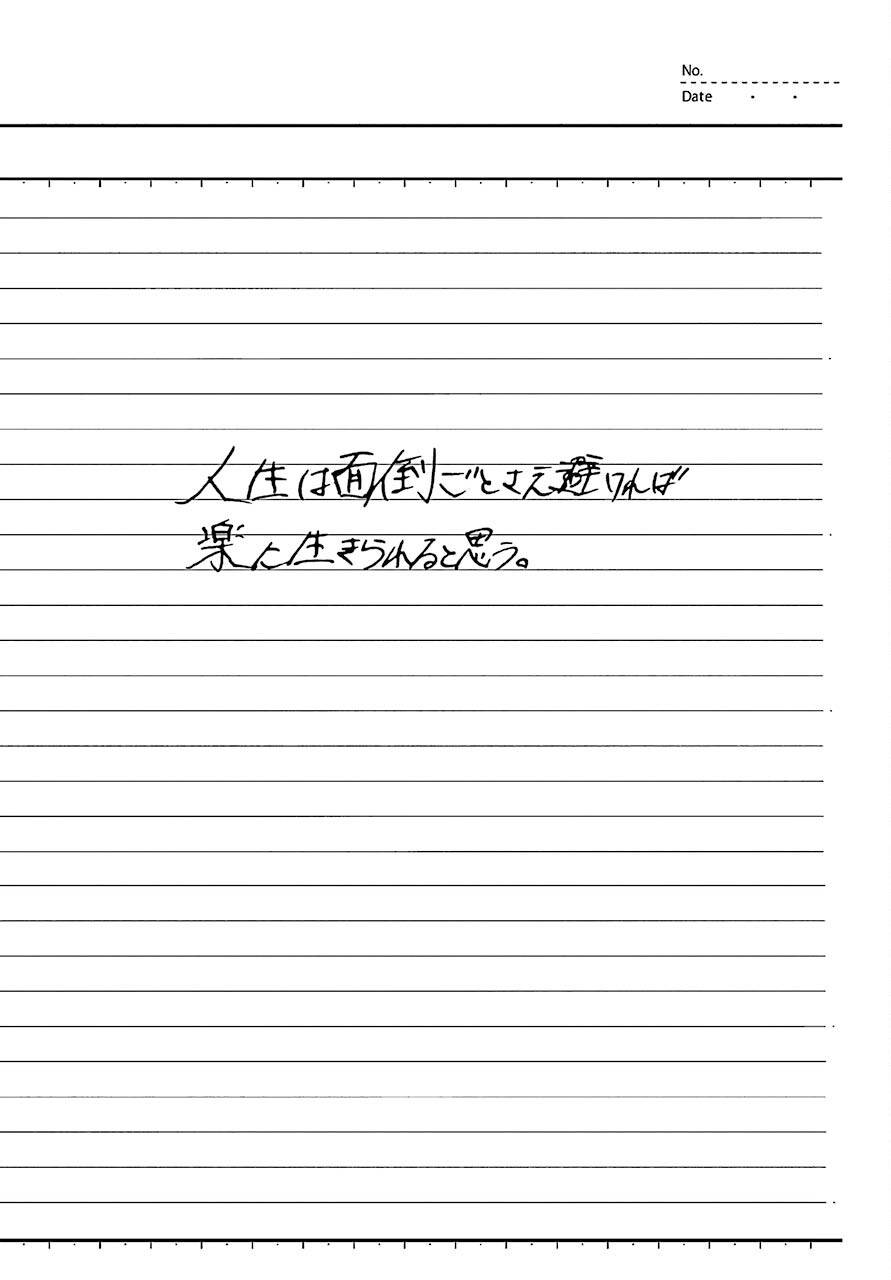 No.
Date ・ ・
人生は面倒ごとさえ避ければ
楽に生きられると思う。